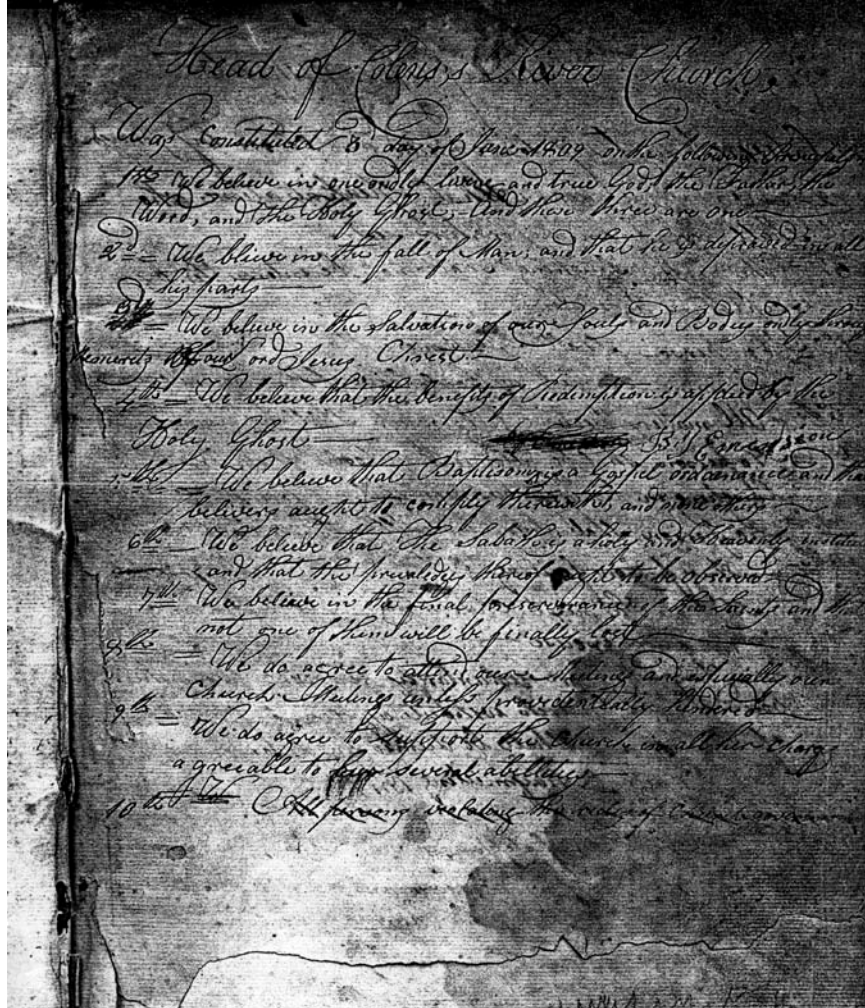 Head of Colens,s River Church,
Was constituted 3 day of June 1809 on the following
1st We believe in one ondly liveing and true God, the Father, the
Word, and the Holy Ghost, and these three are one
2d = We blieve in the fall of Man, and that he is depraved in all
his parts
3d = We believe in the Salvation of our Souls and Bodies ondly
merits of our Lord Jesus Christ.
4th = We believe that the benefits of Redemption is applied by the
Holy Ghost
5th = We believe that Baptism is a Gospel ordanance and
belivers aught to comply therewith, and none others
6th = We believe that The Sabath is a holy and Heavenly
and that the priveledges thereof aught to be observed
7th = We believe in the final perseverance of the Saints and
not one of them will be finally lost
8th = We do agree to attend our Meetings and especially our
Church Meetings unless providentially hindred
9th = We do agree to support the Church in all her
agreeable to several abilities
10th All persons violating the rules of